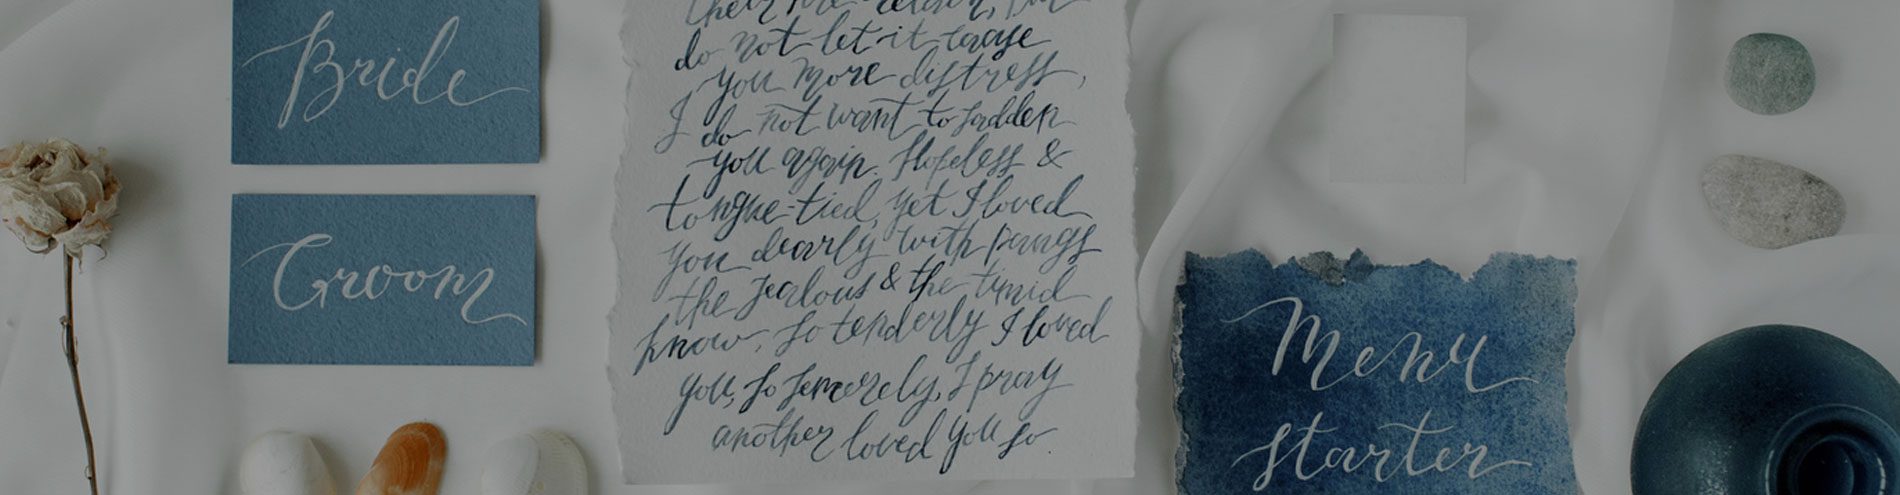 Bride
Groom
do not let it
you more distress,
I do not want to sadden
you again. Hopeless &
tongue-tied, yet I loved
you dearly with pangs
the jealous & the timid
know, so tenderly I loved
you, so sincerely, I pray
another loved you so.
Menu
starter